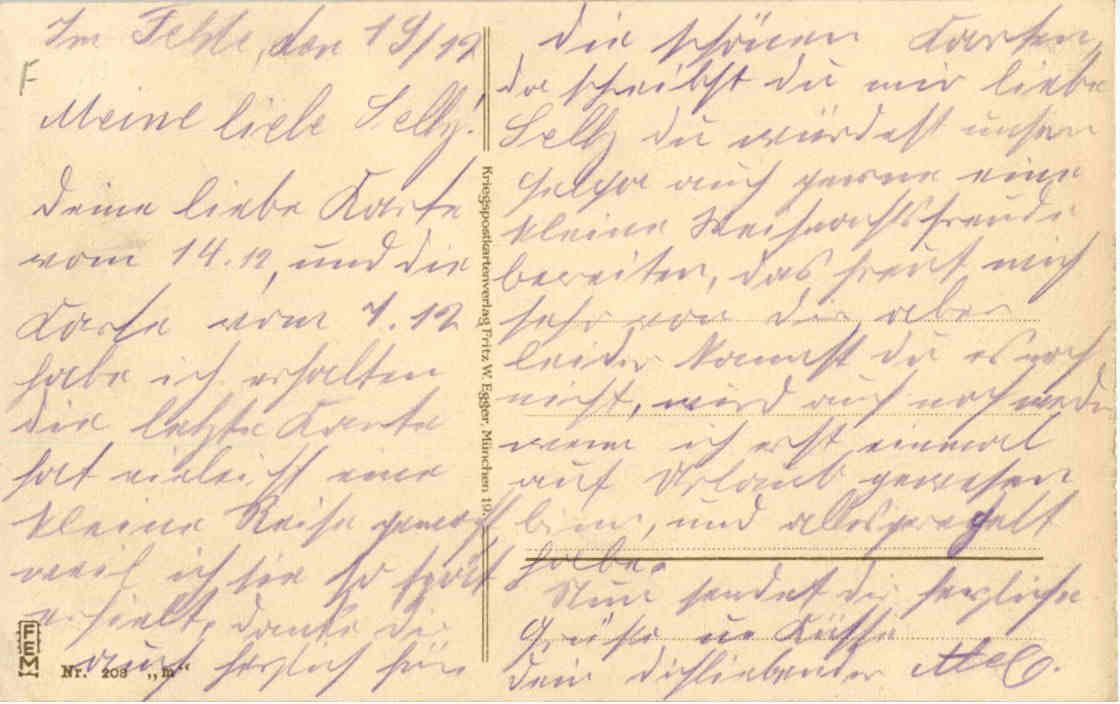 Im Felde, den 19/12
F
Meine liebe Selly!
Deine liebe Karte
vom 14.12, und die
Karte vom 7.12
habe ich erhalten
die letzte Karte
hat vieleicht eine
kleine Reise gemacht
weil ich sie so spät
erhielt, danke dir
auch herzlich für
FEM
Nr. 208 „m“
Kriegspostkartenverlag Fritz W. Egger, München 19.
die schönen Karten,
da schreibst du mir liebe
Selly du würdest
auch gerne eine
kleine Weihnachtsfreude
bereiten, das freut mich
sehr von dir aber
leider kannst du es noch
nicht, wird auch noch
wenn ich erst einmal
auf Urlaub gewesen
bin, und alles geregelt
habe.
Nun sendet dir herzliche
Grüße u. Küsse
Dein dichliebender